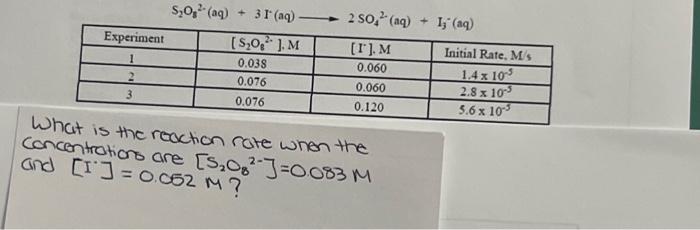 S₂O₈²⁻ (aq) + 3 I⁻ (aq) ⟶ 2 SO₄²⁻ (aq) + I₃⁻ (aq)
Experiment [ S₂O₈²⁻ ], M [I⁻], M Initial Rate, M/s
1 0.038 0.060 1.4 x 10⁻⁵
2 0.076 0.060 2.8 x 10⁻⁵
3 0.076 0.120 5.6 x 10⁻⁵
What is the reaction rate when the
concentrations are [S₂O₈²⁻]=0.083 M
and [I⁻] = 0.052 M?